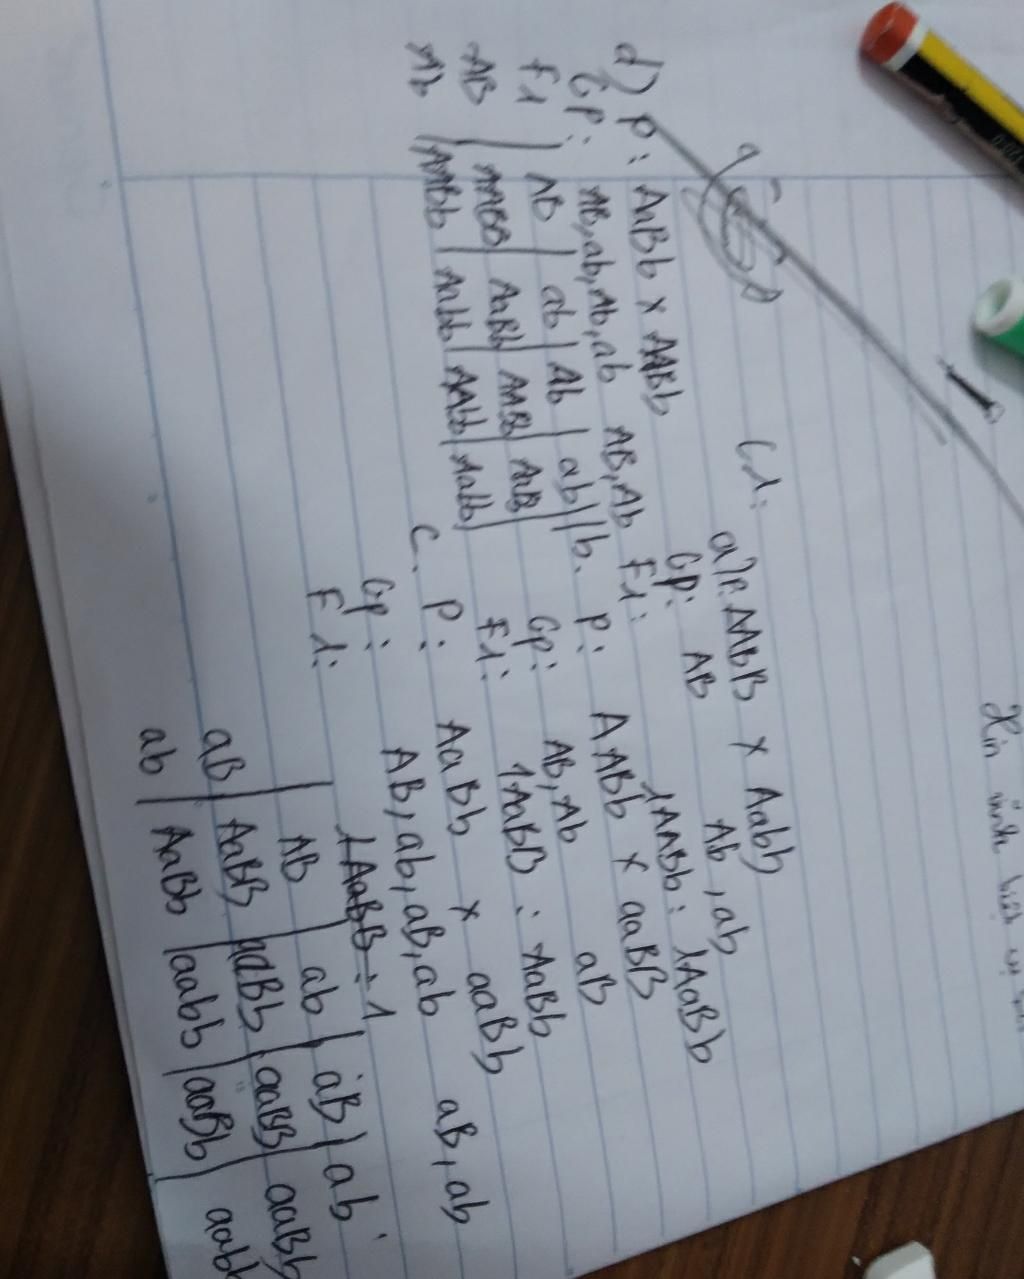 C1:
a) P: AAbB x Aabb
Gp: AB Ab, ab
F1: 1AABb : 1AaBb
b. P: AABb x aaBB
Gp: AB, Ab aB
F1: 1AaBB : AaBb
C. P: AaBb x aaBb
Gp: AB, ab, aB, ab aB, ab
F1: 1AaBB : 1
AB | ab | aB | ab
aB | AaBB | aaBb | aaBB | aaBb
ab | AaBb | aabb | aaBb | aabb
d) P: AaBb x AABb
Gp: AB, ab, Ab, ab AB, Ab
F1 | AB | ab | Ab | ab
AB | AABB | AaBb | AABb | AaBb
Ab | AABb | Aabb | AAbb | Aabb